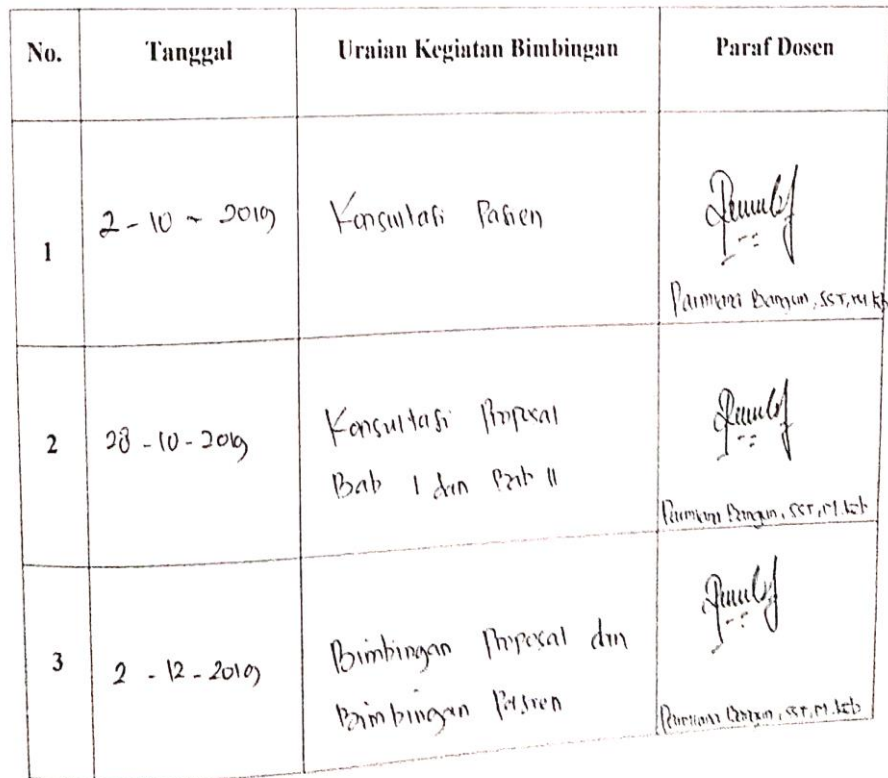 No. Tanggal Uraian Kegiatan Bimbingan Paraf Dosen
1 2-10-2019 Konsultasi Pasien
Bangun, SST, M.Keb
2 28-10-2019 Konsultasi Proposal
Bab I dan Bab II
Bangun, SST, M.Keb
3 2-12-2019 Bimbingan Proposal dan
Bimbingan Pasien
Bangun, SST, M.Keb